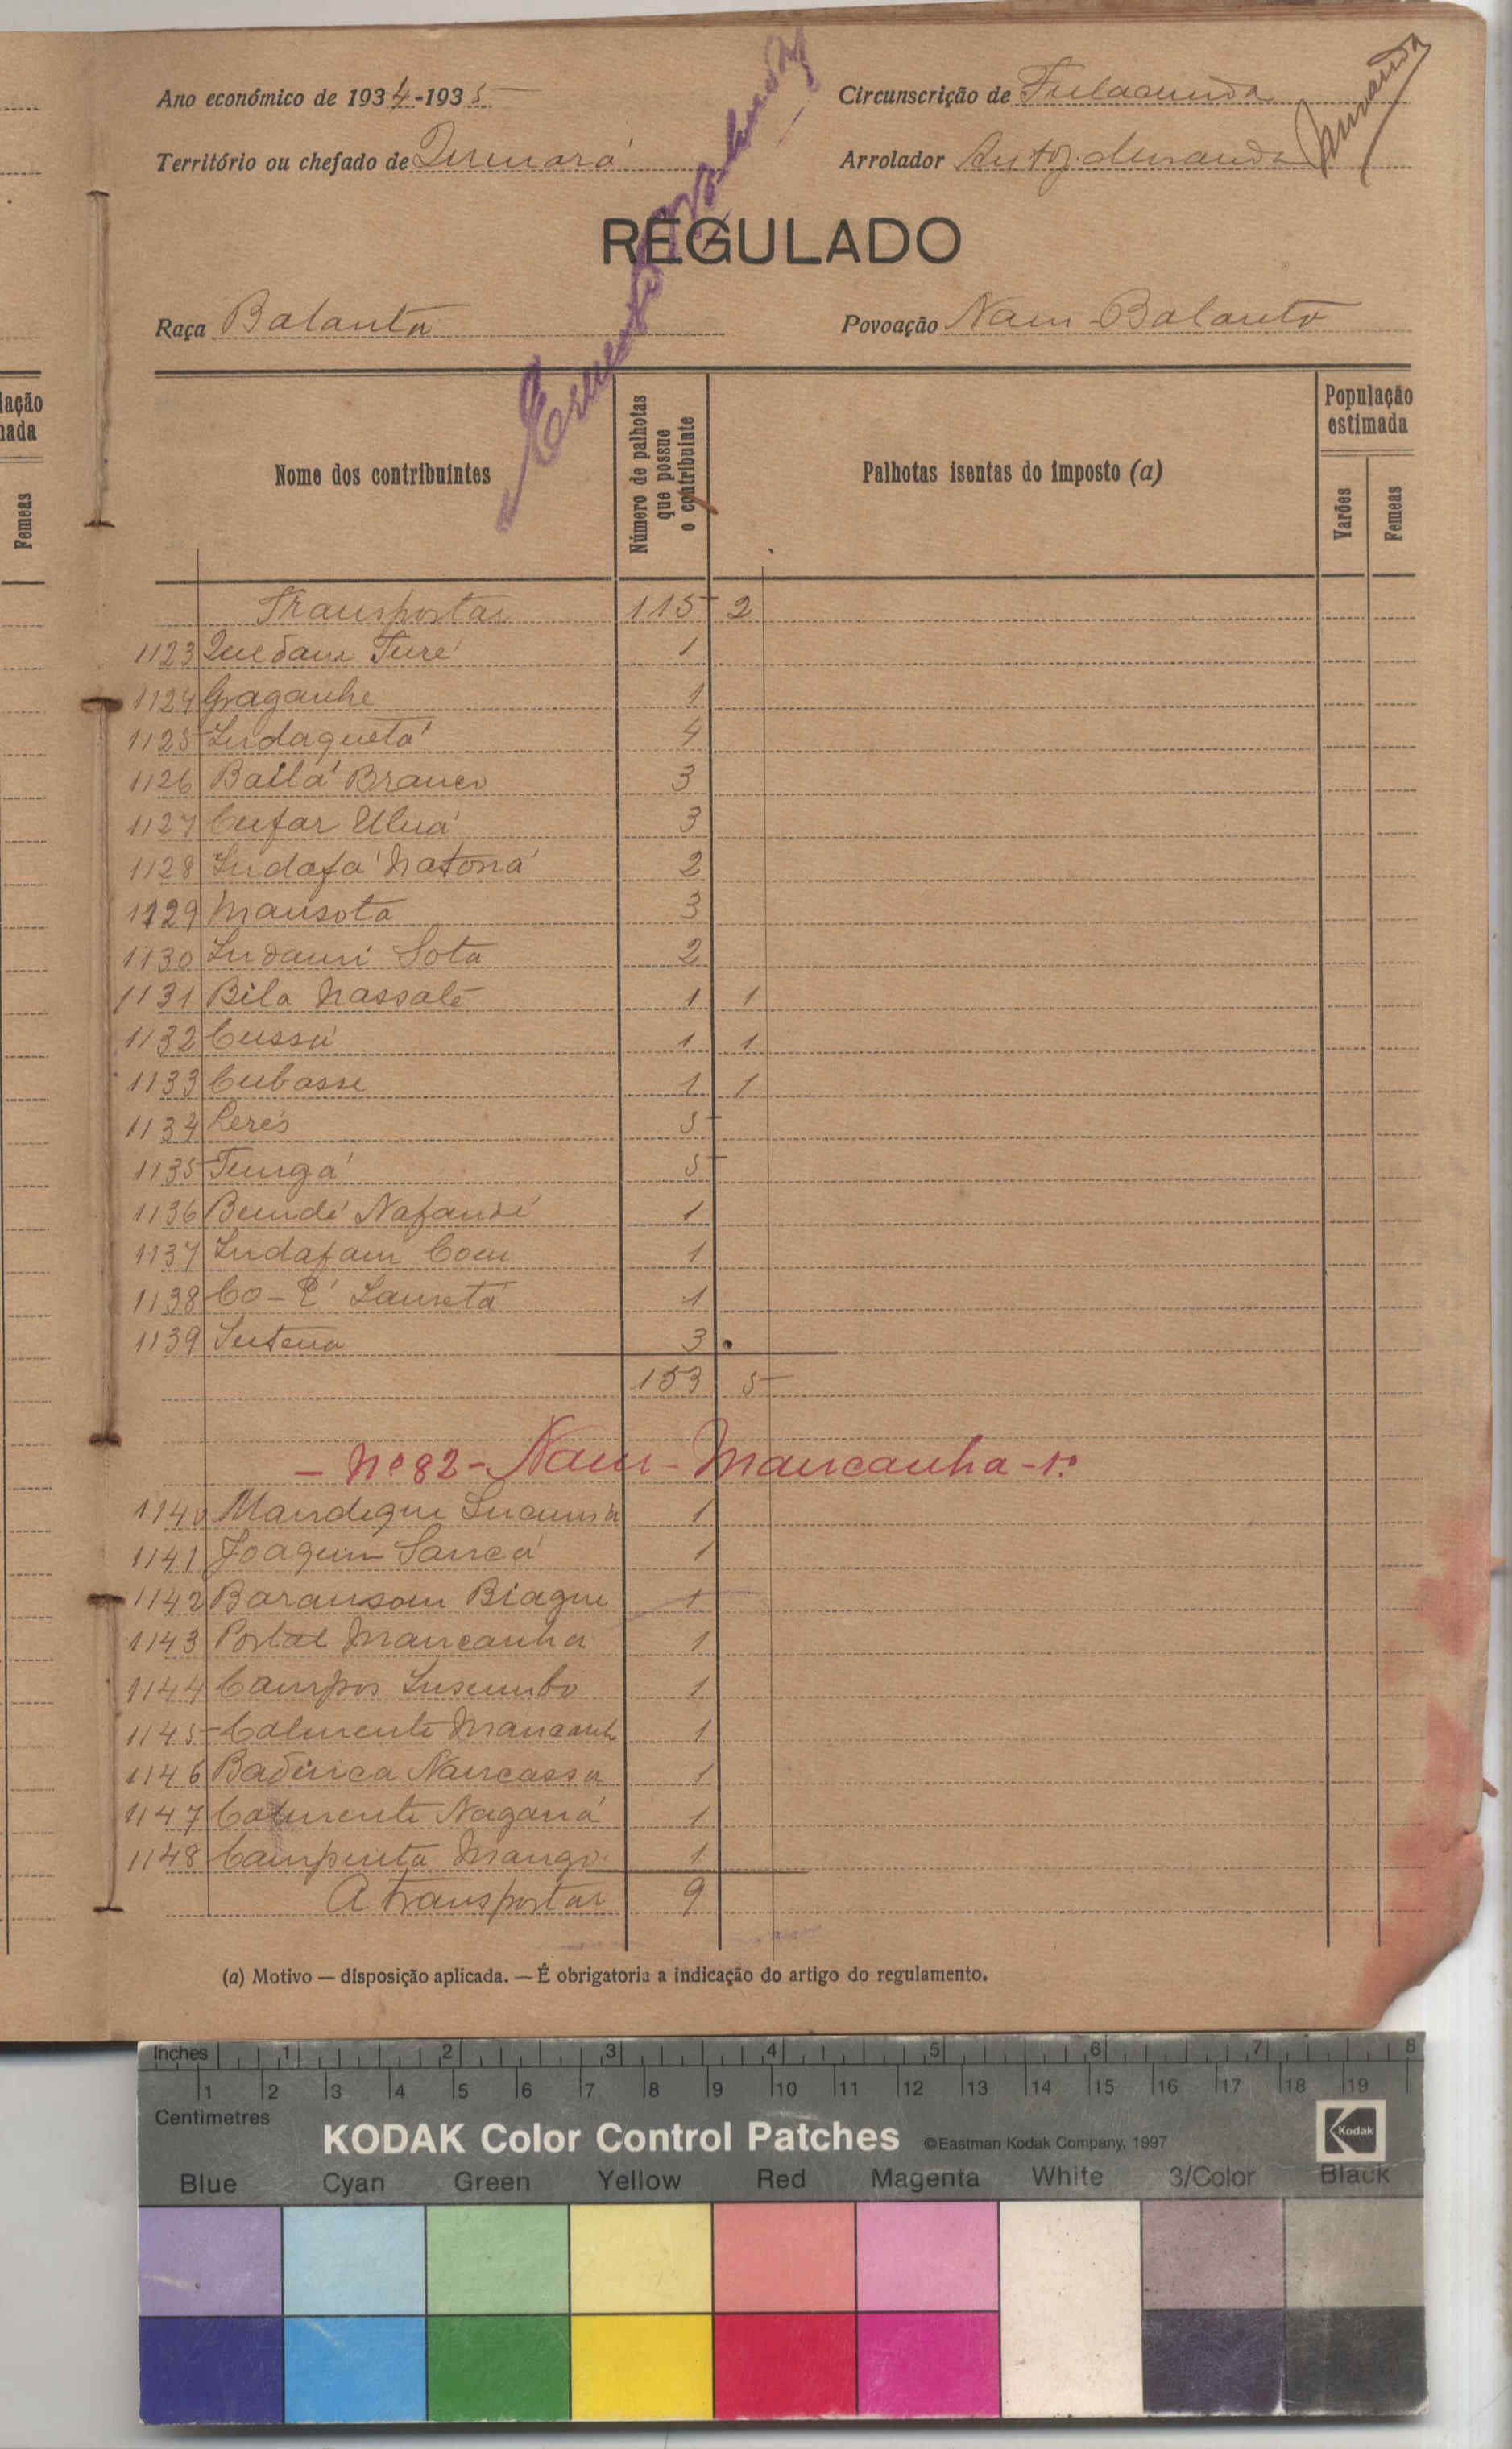 Ano económico de 1934-1935
Circunscrição de Fulacunda
Território ou chefado de Quinará
Arrolador Antº Miranda
Miranda
REGULADO
Raça Balanta
Povoação Nam Balanto
lação
nada
Femeas
Nome dos contribuintes
Número de palhotas que possue o contribuinte
Palhotas isentas do imposto (a)
População estimada
Varões
Femeas
Transportar 115 2
1123 Quedam Turé 1
1124 Graganhe 1
1125 Indaquetá 4
1126 Bailá Branco 3
1127 Cufar Uluá 3
1128 Indafá Natoná 2
1129 Mansota 3
1130 Indami Sota 2
1131 Bila Nassalé 1 1
1132 Cussá 1 1
1133 Cubasse 1 1
1134 Perés 5
1135 Tungá 5
1136 Bundé Nafandé 1
1137 Indafam Com 1
1138 Co-É Laureta 1
1139 3
153 5
- Nº 82 - Nam - Mancanha - 1º
1140 Mandeque 1
1141 Joaquim Sancá 1
1142 Baransam Biague 1
1143 Postal Mancanha 1
1144 Campos 1
1145 Calmente Mancanh 1
1146 Badinca Nancassa 1
1147 Calmente Naganá 1
1148 Campinta Mango 1
A transportar 9
(a) Motivo — disposição aplicada. — É obrigatoria a indicação do artigo do regulamento.
Inches 1 2 3 4 5 6 7 8
1 2 3 4 5 6 7 8 9 10 11 12 13 14 15 16 17 18 19
Centimetres
KODAK Color Control Patches ©Eastman Kodak Company, 1997 Kodak
Blue Cyan Green Yellow Red Magenta White 3/Color Black